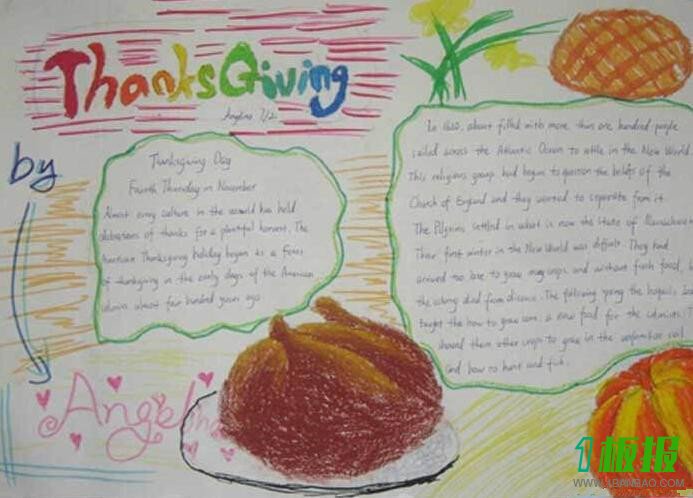 ThanksGiving
Angelina 7/2
by
Angelina
Thanksgiving Day
Fourth Thursday in November
Almost every culture in the world has held
celebrations of thanks for a plentiful harvest. The
American Thanksgiving holiday began as a feast
of thanksgiving in the early days of the American
almost four hundred years ago
In 1620, a boat filled with more than one hundred people
sailed across the Atlantic Ocean to settle in the New World.
This religious group had begun to question the beliefs of the
Church of England and they wanted to separate from it.
The Pilgrims settled in what is now the state of
Their first winter in the New World was difficult. They had
arrived too late to grow many crops and without fresh food,
the colony died from disease. The following spring the
taught the how to grow corn, a new food for the colonists.
them other crops to grow in the unfamiliar soil
and how to hunt and fish.
1板报
WWW.1BANBAO.COM